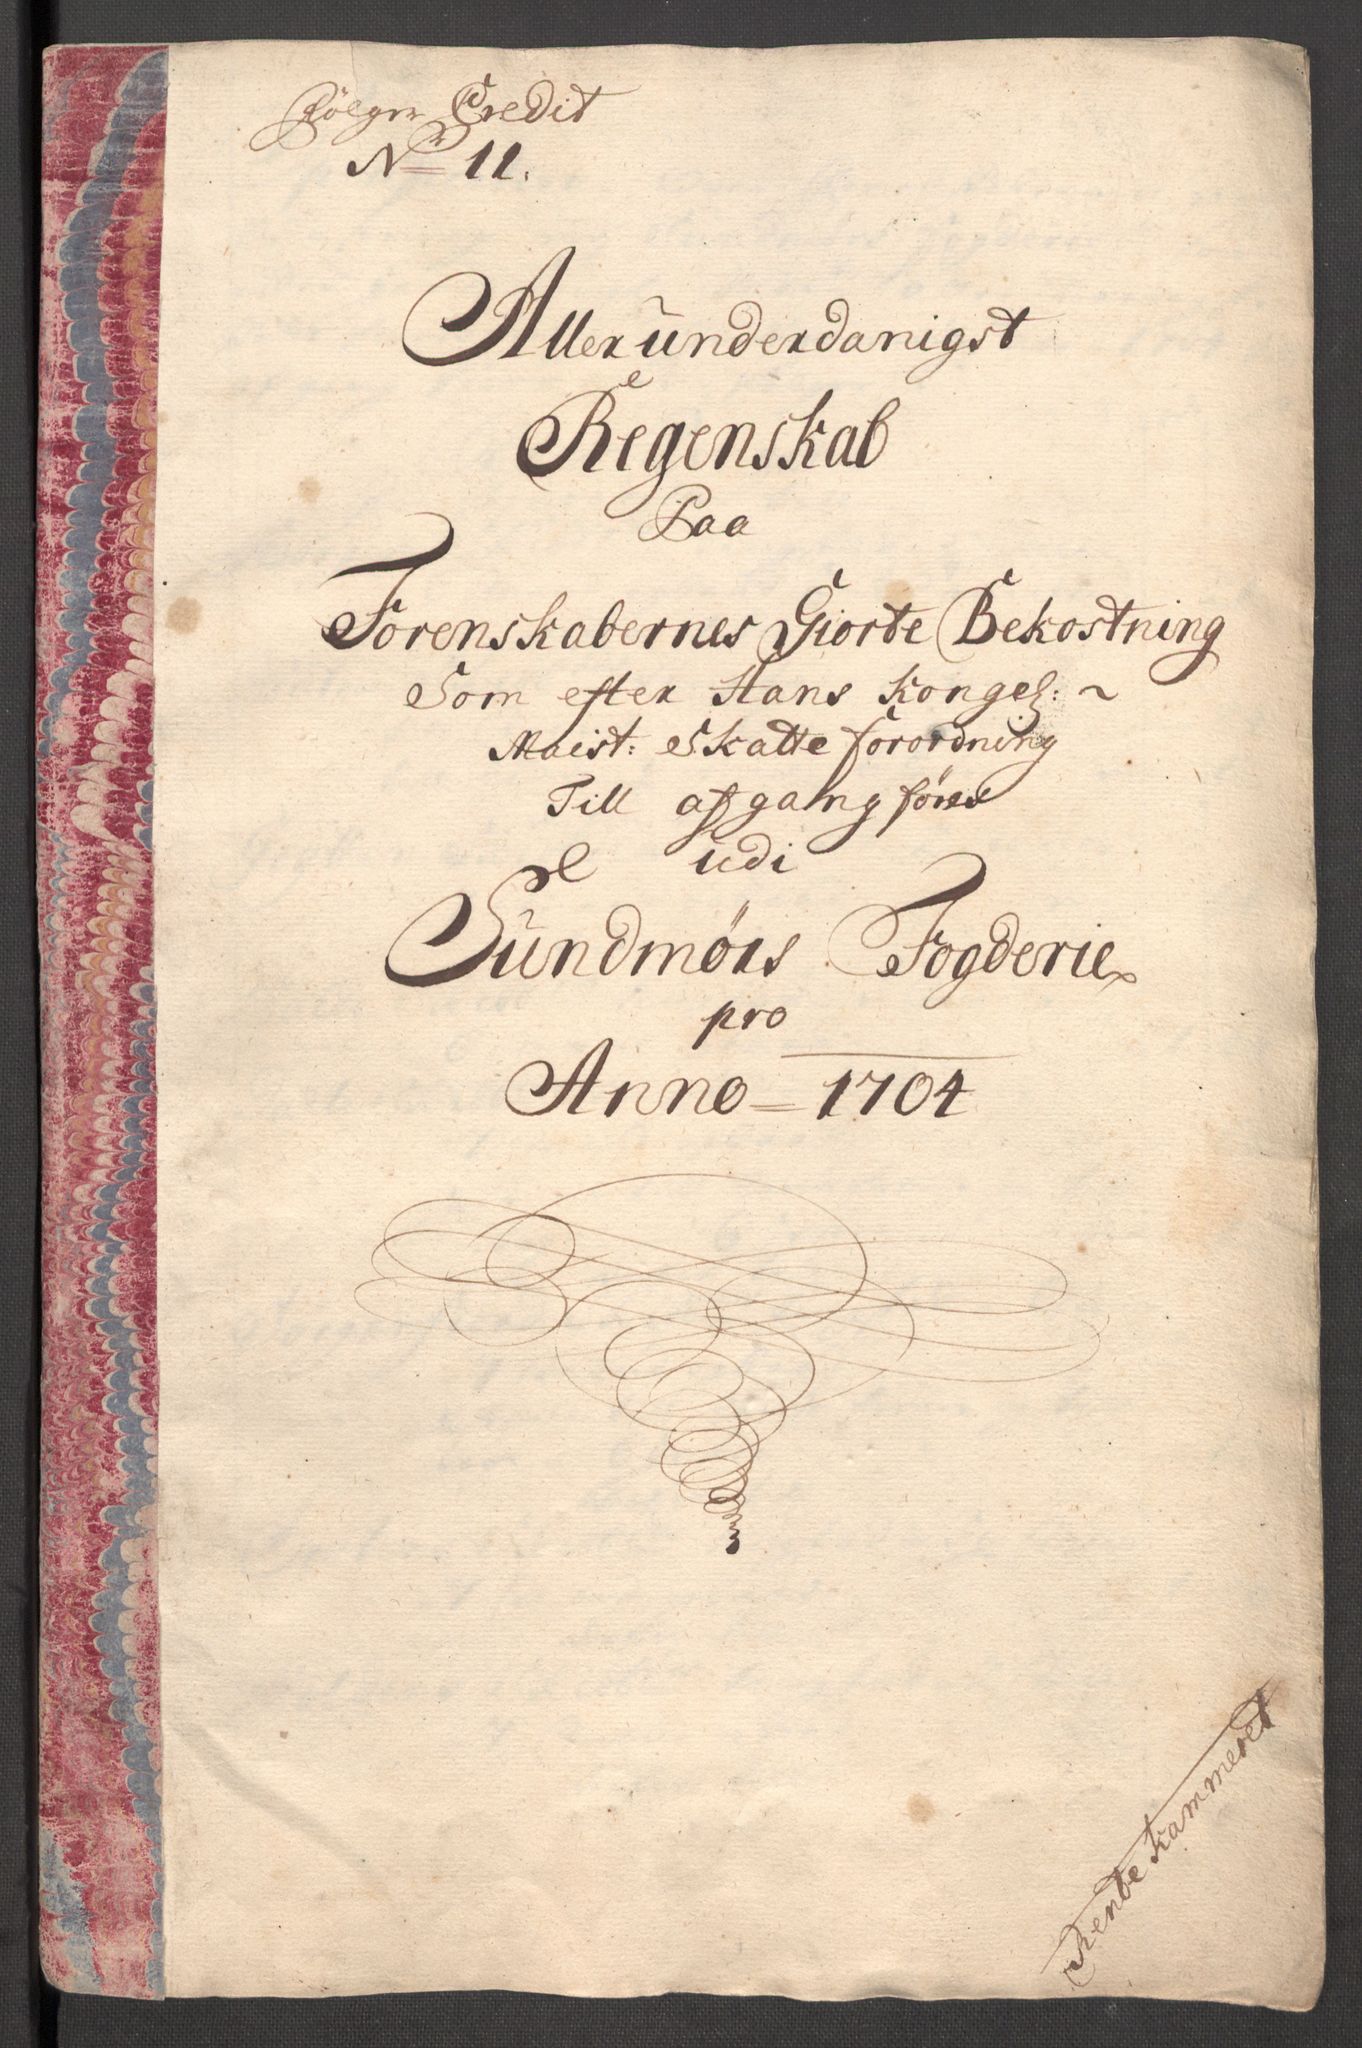 Følger Credit
No 11.
Allerunderdanigst
Regenskab
Paa
Forenskabernes Giorte Bekostning
Som efter Hans Kongel: ~
Maist: Skatte forordning
Till afgang føres
udi
Sundmørs Fogderie
pro
Anno = 1704
Rente Kammeret